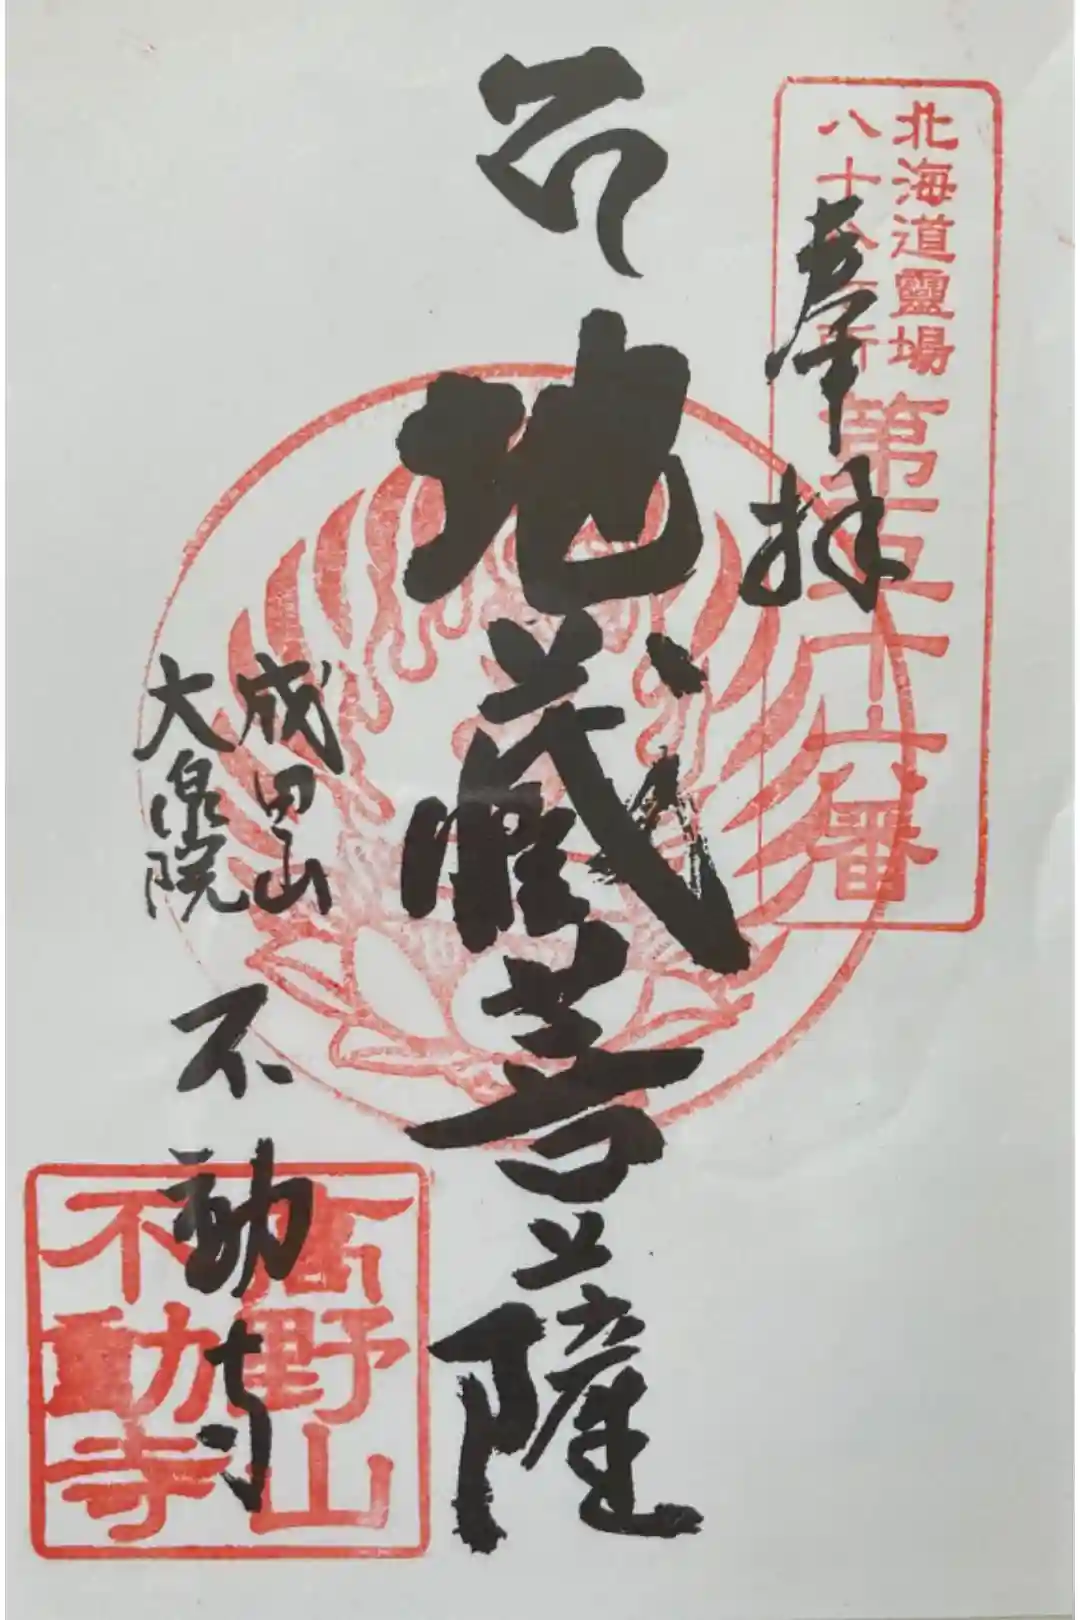 北海道靈場
八十八ヶ所
第五十六番
奉拝
地蔵菩薩
成田山
大泉院
不動寺
高野山
不動寺